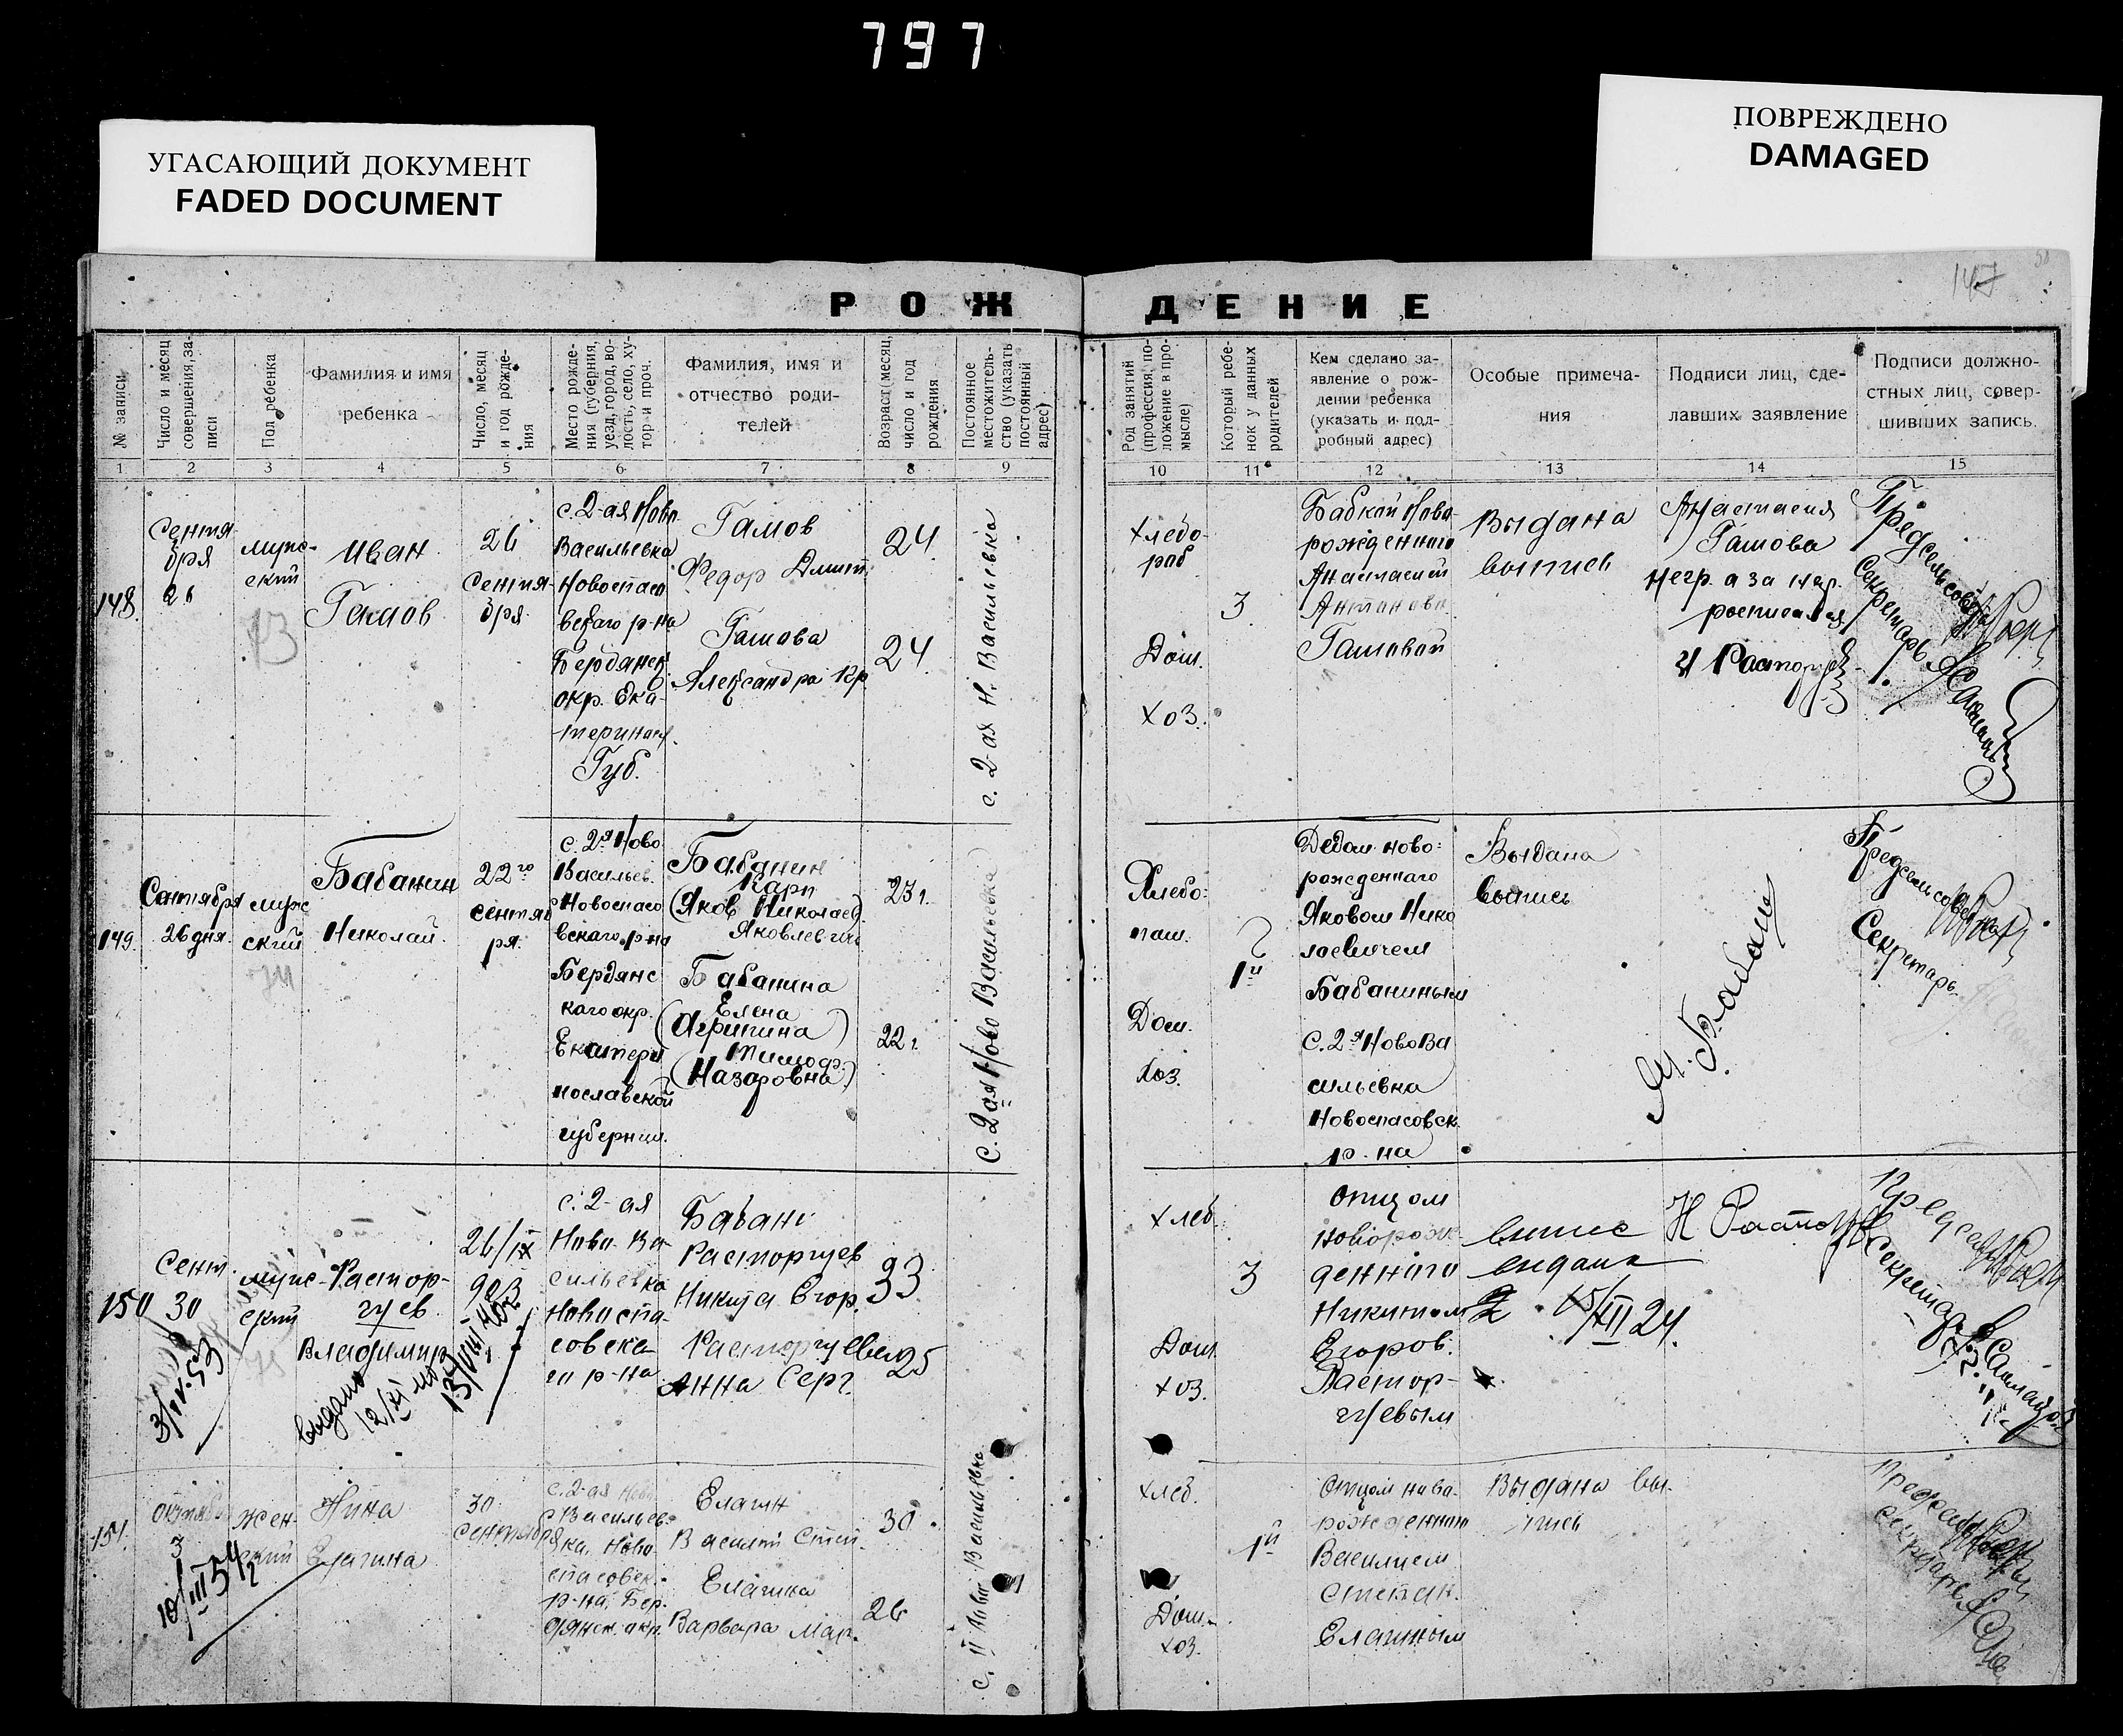 797
УГАСАЮЩИЙ ДОКУМЕНТ
FADED DOCUMENT
ПОВРЕЖДЕНО
DAMAGED
РОЖДЕНИЕ
№ записи
Число и месяц
совершения, за-
писи
Пол ребенка
Фамилия и имя
ребенка
Число, месяц
и год рожде-
ния
Место рожде-
ния (губерния,
уезд, город, во-
лость, село, ху-
тор и проч.
Фамилия, имя и
отчество роди-
телей
Возраст (месяц,
число и год
рождения
Постоянное
местожитель-
ство (указать
постоянный
адрес)
Род занятий
(профессия, по-
ложение в про-
мысле)
Который ребе-
нок у данных
родителей
Кем сделано за-
явление о рож-
дении ребенка
(указать и под-
робный адрес)
Особые примеча-
ния
Подписи лиц, сде-
лавших заявление
Подписи должно-
стных лиц, совер-
шивших запись.
1 2 3 4 5 6 7 8 9 10 11 12 13 14 15
148.
Сентя-
бря
26
мужс-
ский
13
Иван
Гамов
26
Сентя-
бря
с. 2-ая Ново-
Васильевка
Новоспасо
вскаго р-на
Бердянск.
окр. Ека-
теринос.
Губ.
Гамов
Федор Дмит.
Гамова
Александра Кр.
24
24
с. 2-ая Н. Васильевка
Хлебо-
роб
Дом.
хоз.
3
Бабкой Ново-
рожденного
Анастасией
Антоновн.
Гамовой
Выдана
выпись
Анастасия
Гамова
негр. а за нея
росписался
Предсельсовета
Секретарь
149.
Сентября
26 дня.
мужс
ский
Бабанин
Николай.
22го
сентяб
ря.
с. 2я Ново
Васильев.
Новоспасо
вскаго р-на
Бердянс
каго окр.
Екатери
нославской
губернии.
Бабанин
Карп
(Яков Николаев)
Яковлевич
Бабанина
Елена
(Агрипина)
Тимоф.
(Назаровна)
23 г.
22 г.
С. 2ая Ново Васильевка
Хлебо-
паш.
Дом.
хоз.
1й
Дедом ново-
рожденнаго
Яковом Нико
лаевичем
Бабаниным
С. 2я НовоВа
сильевка
Новоспасовск.
р-на
Выдана
выпись
Предсельсовета
Секретарь
150
Сент.
30
3/IV.53
мужс-
ский
Растор-
гуев
Владимир
выдано
26/IX
923
с. 2-ая
Ново-Ва-
сильевка
Новоспа-
совска-
го р-на
Расторгуев
Никита Егор.
Расторгуева
Анна Серг.
33
25
Хлеб.
Дом.
хоз.
3
Отцом
новорож-
денного
Никитом
Егоров.
Растор-
гуевым
выпис
выдана
15/XII 24.
Н Расторгуев
Секретарь
151.
Октября
3
10/III 54
жен-
ский
Нина
Елагина
30
Сентября
с. 2-ая Ново
Васильев-
ка, Ново-
спасовск.
р-на, Бер-
дянск. окр.
Елагин
Василий Степ.
Елагина
Варвара Мар.
30
26
с. II Ново Васильевка
Хлеб.
Дом.
хоз.
1й
Отцом ново-
рожденного
Василием
Степан.
Елагиным
Выдана вы-
пись